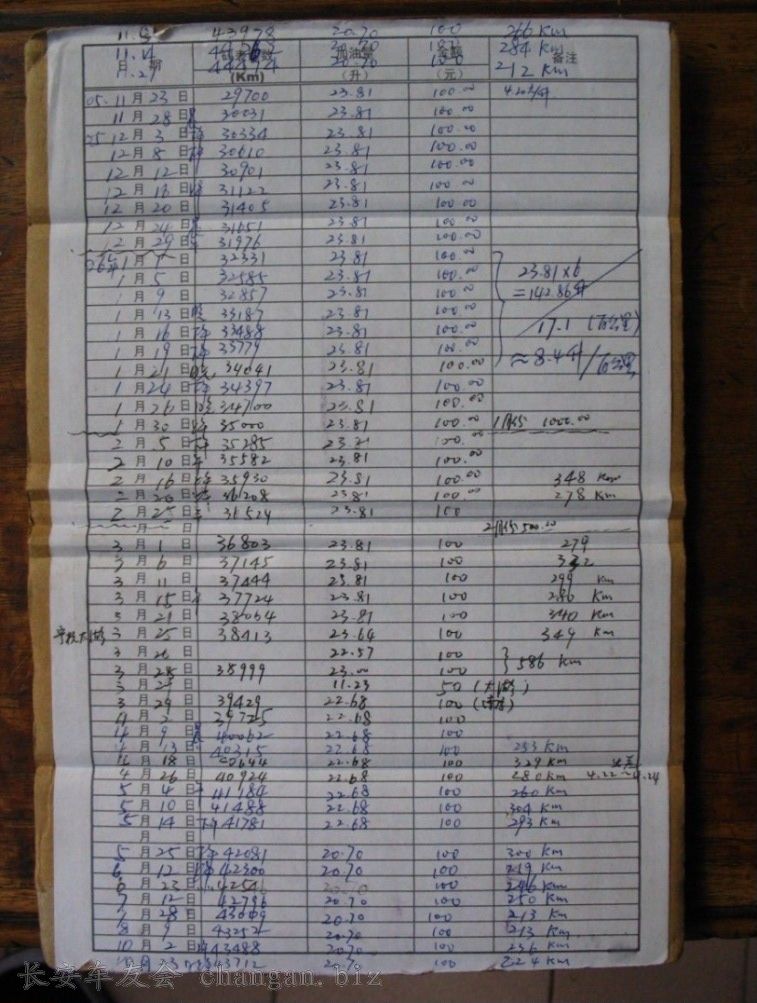 11.9 43978 20.70 100 266 Km
11.14 20.70 284 Km
11.27 20.70 100 212 Km
日期 (Km) 加油量(升) 金额(元) 备注
05.11月23日 29700 23.81 100.00
11月28日 30031 23.81 100.00
05 12月3日 30334 23.81 100.00
12月8日 30610 23.81 100.00
12月12日 30901 23.81 100.00
12月16日 31122 23.81 100.00
12月20日 31405 23.81 100.00
12月24日 31651 23.81 100.00
12月29日 31976 23.81 100.00
06年1月1日 32331 23.81 100.00
1月5日 32585 23.81 100.00 23.81×6
1月9日 32857 23.81 100.00 =142.86升
1月13日 33187 23.81 100.00
1月16日 33488 23.81 100.00 17.1(百公里)
1月19日 33779 23.81 100.00
1月21日 34041 23.81 100.00 ≈8.4升/百公里
1月24日 34397 23.81 100.00
1月26日 34700 23.81 100.00
1月30日 35000 23.81 100.00 1月份 1000.00
2月5日 35285 23.81 100.00
2月10日 35582 23.81 100.00
2月16日 35930 23.81 100.00 348 Km
2月20日 36208 23.81 100.00 278 Km
2月25日 36524 23.81 100
月 日 2月份500.00
3月1日 36803 23.81 100 279
3月6日 37145 23.81 100
3月11日 37444 23.81 100 299 Km
3月15日 37724 23.81 100 280 Km
3月21日 38064 23.81 100 340 Km
3月25日 38413 23.64 100 349 Km
3月26日 22.57 100
3月28日 38999 23.00 100 586 Km
3月29日 11.23 50
3月29日 39429 22.68 100
4月2日 39725 22.68 100
4月9日 40062 22.68 100
4月13日 40315 22.68 100 253 Km
4月18日 40644 22.68 100 329 Km
4月26日 40924 22.68 100 280 Km 4.22~4.24
5月4日 41184 22.68 100 260 Km
5月10日 41488 22.68 100 304 Km
5月14日 41781 22.68 100 293 Km
月 日
5月25日 42081 20.70 100 300 Km
6月12日 42300 20.70 100 219 Km
6月23日 20.70 100 246 Km
7月12日 42796 20.70 100 250 Km
7月28日 43009 20.70 100 213 Km
8月9日 43252 20.70 100
10月2日 43488 20.70 100 236 Km
43712 20.70 100 224 Km
长安车友会 changan.biz